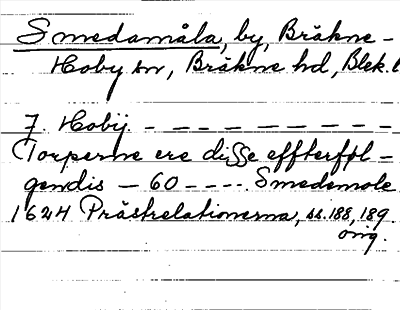 Smedamåla, by, Bräkne-
Hoby sn, Bräkne hd, Blek. l
J. Hobij. – – – – – – – –
Torperne ere disse effterføl-
gendis – 60 – – – . Smedemole
1624 Prästrelationerna, ss. 188, 189.
orig.